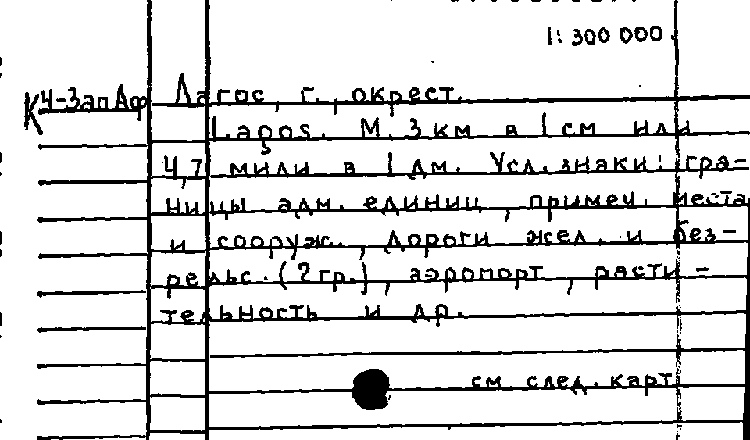 1:300 000
К4-ЗапАф Лагос, г., окрест.
Lagos. М. 3 км в 1 см или
4,7 мили в 1 дм. Усл. знаки: гра-
ницы адм. единиц, примеч. места
и сооруж., дороги жел. и без-
рельс. (2 гр.), аэропорт, расти-
тельность и др.
см. след. карт.